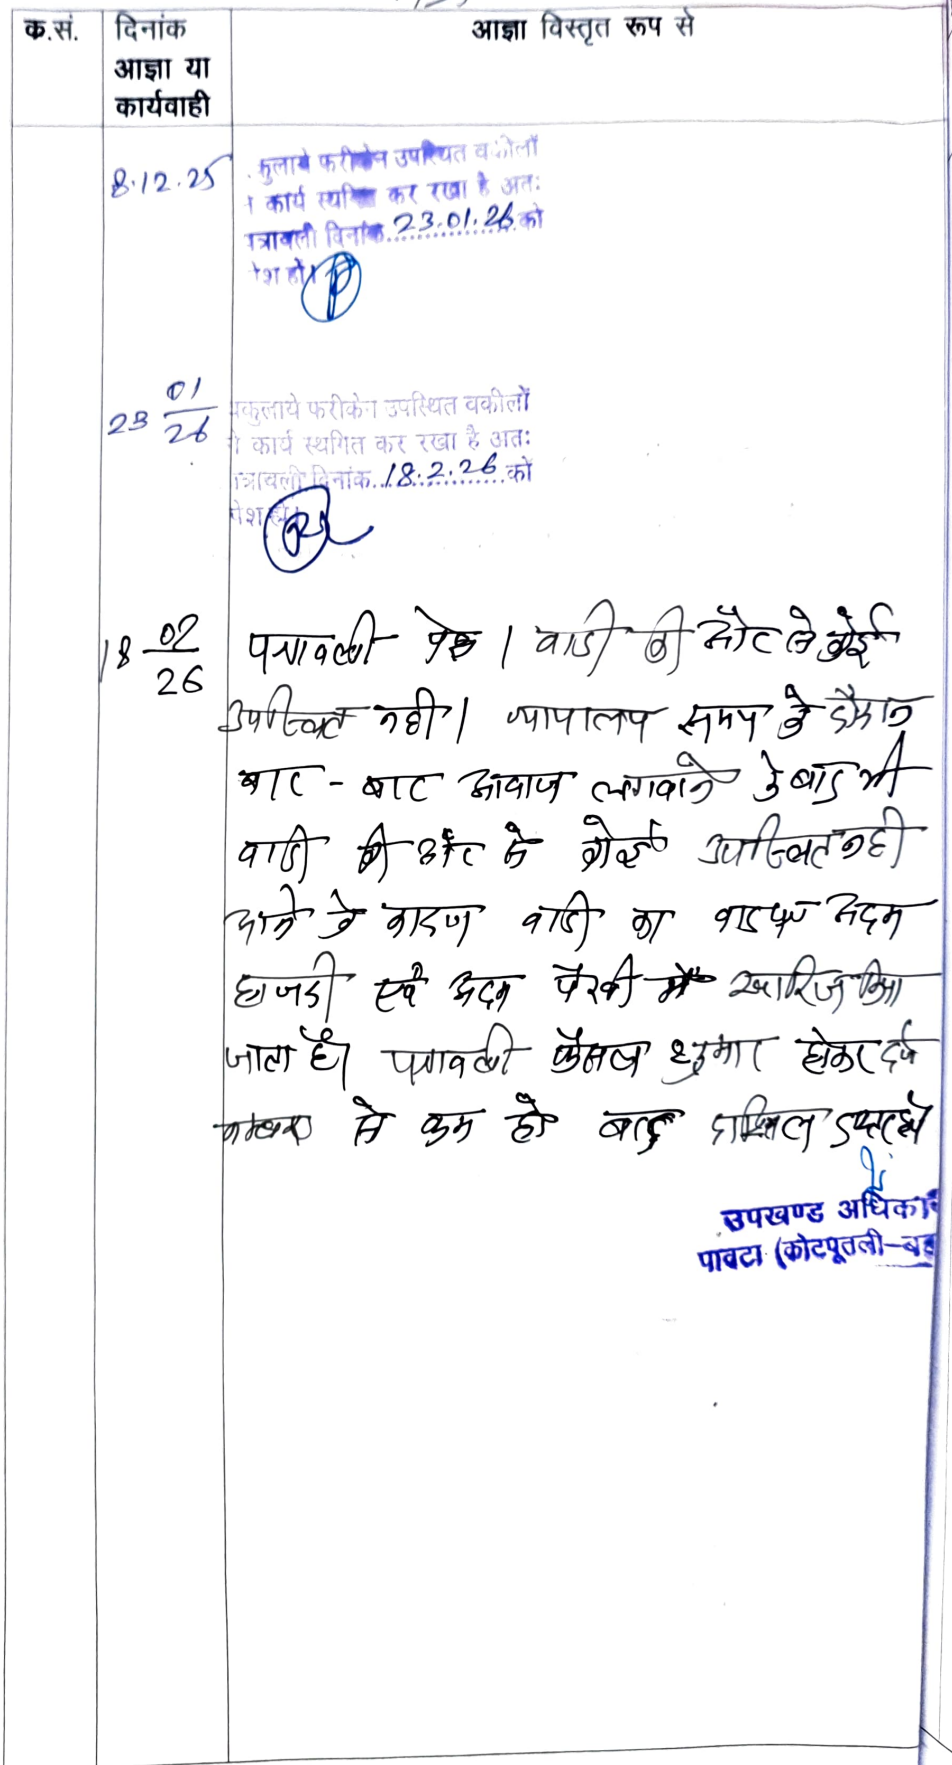 क.सं. दिनांक आज्ञा या कार्यवाही आज्ञा विस्तृत रूप से
8.12.25
कुलाये फरीकेन उपस्थित वकीलों
कार्य स्थगित कर रखा है अतः
त्रावली दिनांक 23.01.26 को
ेश हो।
23 01/26
कुलाये फरीकेन उपस्थित वकीलों
ने कार्य स्थगित कर रखा है अतः
त्रावली दिनांक 18.2.26 को
पेश हो।
18 02/26
पत्रावली पेश। वादी की ओर से कोई
उपस्थित नही। न्यायालय समय के दौरान
बार - बार आवाज लगवाने के बाद भी
वादी की ओर से कोई उपस्थित नही
आने के कारण वादी का वाद पत्र अदम
हाजरी एवं अदम पैरवी में खारिज किया
जाता है। पत्रावली फैसल शुमार होकर दर्ज
से कम हो बाद दाखिल दफ्तर हो
उपखण्ड अधिका
पावटा (कोटपूतली-बह